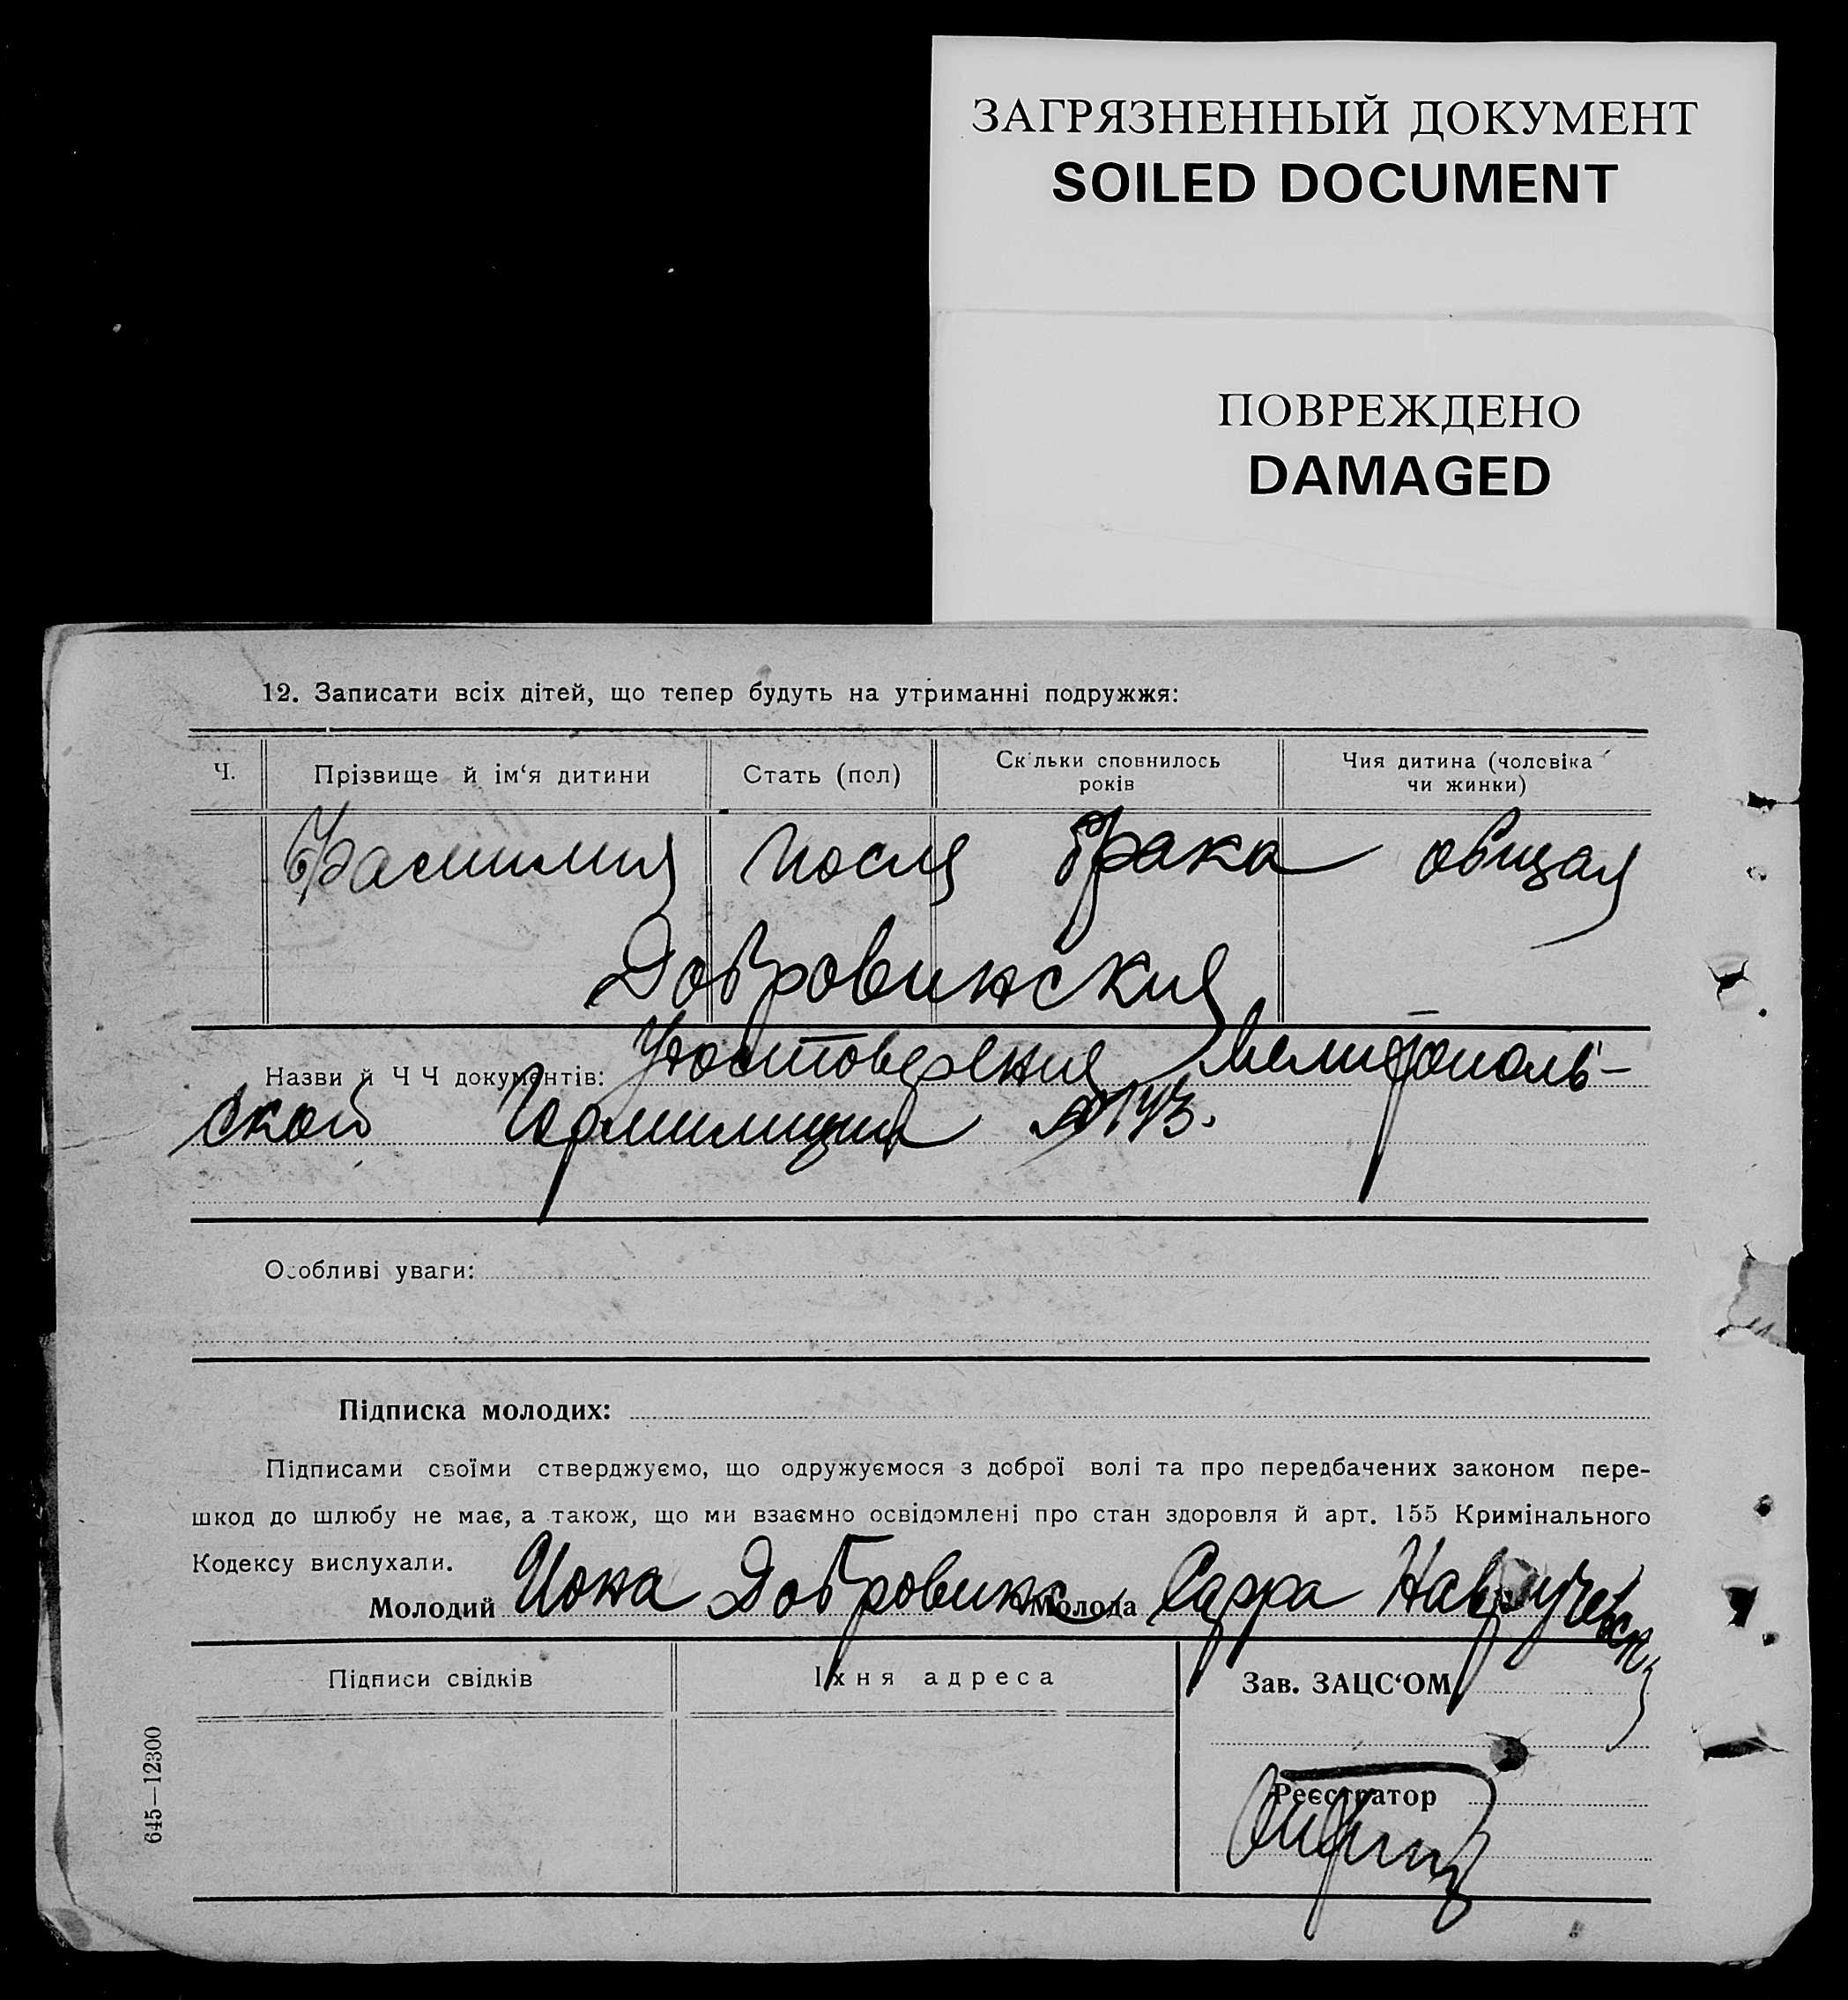 ЗАГРЯЗНЕННЫЙ ДОКУМЕНТ
SOILED DOCUMENT
ПОВРЕЖДЕНО
DAMAGED
12. Записати всіх дітей, що тепер будуть на утриманні подружжя:
Ч. Прізвище й ім‘я дитини Стать (пол) Скільки сповнилось років Чия дитина (чоловіка чи жинки)
Фамилия после брака общая
Добровинския
Назви й Ч Ч документів: Удостоверения Мелитополь-
ской Гормилиции №143.
Особливі уваги:
Підписка молодих:
Підписами своїми стверджуємо, що одружуємося з доброї волі та про передбачених законом пере-
шкод до шлюбу не має, а також, що ми взаємно освідомлені про стан здоровля й арт. 155 Кримінального
Кодексу вислухали.
Молодий Иона Добровинс Молода Сарра
Підписи свідків Їхня адреса Зав. ЗАЦС‘ОМ
Реєстратор
645—12300